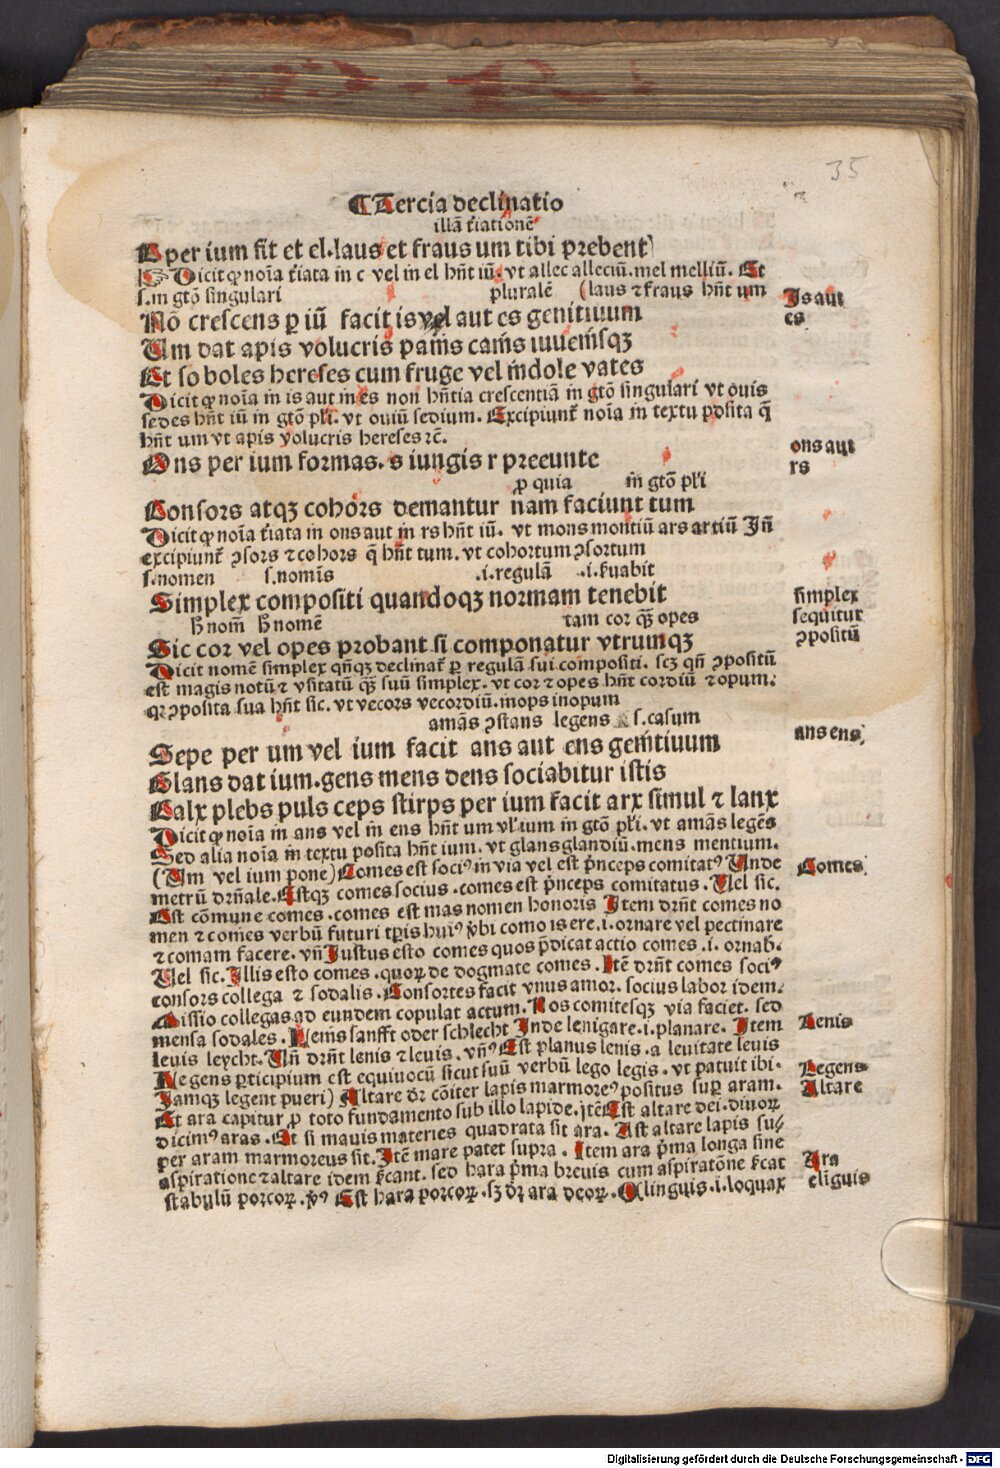 35
¶Tercia declinatio
illã t̃iationẽ
C per ium fit et el. laus et fraus um tibi prebent
Dicit ꝙ noĩa t̃iata in c vel in el hñt iũ. vt allec alleciũ. mel melliũ. Et
s. in gtõ singulari pluralẽ (laus ⁊ fraus hñt um
Is aut
es
Nõ crescens ꝑ iũ facit is vel aut es genitiuum
Um dat apis volucris panis canis iuuenisqꝫ
Et soboles hereses cum fruge vel indole vates
Dicit ꝙ noĩa in is aut in es non hñtia crescentiã in gtõ singulari vt ouis
sedes hñt iũ in gtõ pl̃i. vt ouiũ sedium. Excipiunt̃ noĩa in textu posita q̃
hñt um vt apis volucris hereses ⁊c̃.
ons aut
rs
Ons per ium formas. s iungis r preeunte
ꝓ quia in gtõ pl̃i
Consors atqꝫ cohors demantur nam faciunt tum
Dicit ꝙ noĩa t̃iata in ons aut in rs hñt iũ. vt mons montiũ ars artiũ In̈
excipiunt̃ ꝯsors ⁊ cohors q̃ hñt tum. vt cohortum ꝯsortum
s. nomen s. nomĩs .i. regulã .i. ẜuabit
Simplex compositi quandoqꝫ normam tenebit
simplex
sequitur
ꝯpositũ
hʒ nom̃ hʒ nomẽ tam cor qꝫ̃ opes
Sic cor vel opes probant si componatur vtrumqꝫ
Dicit nomẽ simplex qñqꝫ declinat̃ ꝑ regulã sui compositi. scꝫ qñ ꝯpositũ
est magis notũ ⁊ vsitatũ qꝫ̃ suũ simplex. vt cor ⁊ opes hñt cordiũ ⁊ opum.
qꝛ ꝯposita sua hñt sic. vt vecors vecordiũ. inops inopum
amãs ꝯstans legens s. casum
ans ens
Sepe per um vel ium facit ans aut ens genitiuum
Glans dat ium. gens mens dens sociabitur istis
Calx plebs puls ceps stirps per ium facit arx simul ⁊ lanx
Dicit ꝙ noĩa in ans vel in ens hñt um vl̃ ium in gtõ pl̃i. vt amãs legẽs
Sed alia noĩa in textu posita hñt ium. vt glans glandiũ. mens mentium.
(Um vel ium pone) Comes est sociꝰ in via vel est p̃nceps comitatꝰ Unde
Comes
metrũ dr̃ñale. Estqꝫ comes socius. comes est p̃nceps comitatus. Uel sic.
Est cõmune comes. comes est mas nomen honoris Item dr̃ñt comes no
men ⁊ comes verbũ futuri tp̃is huiꝰ v̓bi como is ere. i. ornare vel pectinare
⁊ comam facere. vñ Iustus esto comes quos p̃dicat actio comes. i. ornab.
Uel sic. Illis esto comes. quoꝝ de dogmate comes. Itẽ dr̃ñt comes sociꝰ
consors collega ⁊ sodalis. Consortes facit vnus amor. socius labor idem.
Missio collegas ad eundem copulat actum. Nos comitesqꝫ via faciet. sed
mensa sodales. Lenis sanfft oder schlecht Inde lenigare. i. planare. Item
Lenis
leuis leycht. Uñ dr̃ñt lenis ⁊ leuis. vñꝰ Est planus lenis. a leuitate leuis
Legens ꝑticipium est equiuocũ sicut suũ verbũ lego legis. vt patuit ibi.
Legens
Iamqꝫ legent pueri) Altare dr̃ cõiter lapis marmoreꝰ positus suꝑ aram.
Altare
Et ara capitur ꝓ toto fundamento sub illo lapide. itẽ Est altare dei. diuoꝝ
dicimꝰ aras. Et si mauis materies quadrata sit ara. Ast altare lapis su/
per aram marmoreus sit. Itẽ mare patet supra. Item ara p̃ma longa sine
aspiratione ⁊ altare idem ẜcant. sed hara p̃ma breuis cum aspiratõne ẜcat
Ara
stabulũ porcoꝝ. v̓ꝰ Est hara porcoꝝ. sꝫ dr̃ ara deoꝝ. Elinguis. i. loquax
elĩguis
Digitalisierung gefördert durch die Deutsche Forschungsgemeinschaft - DFG